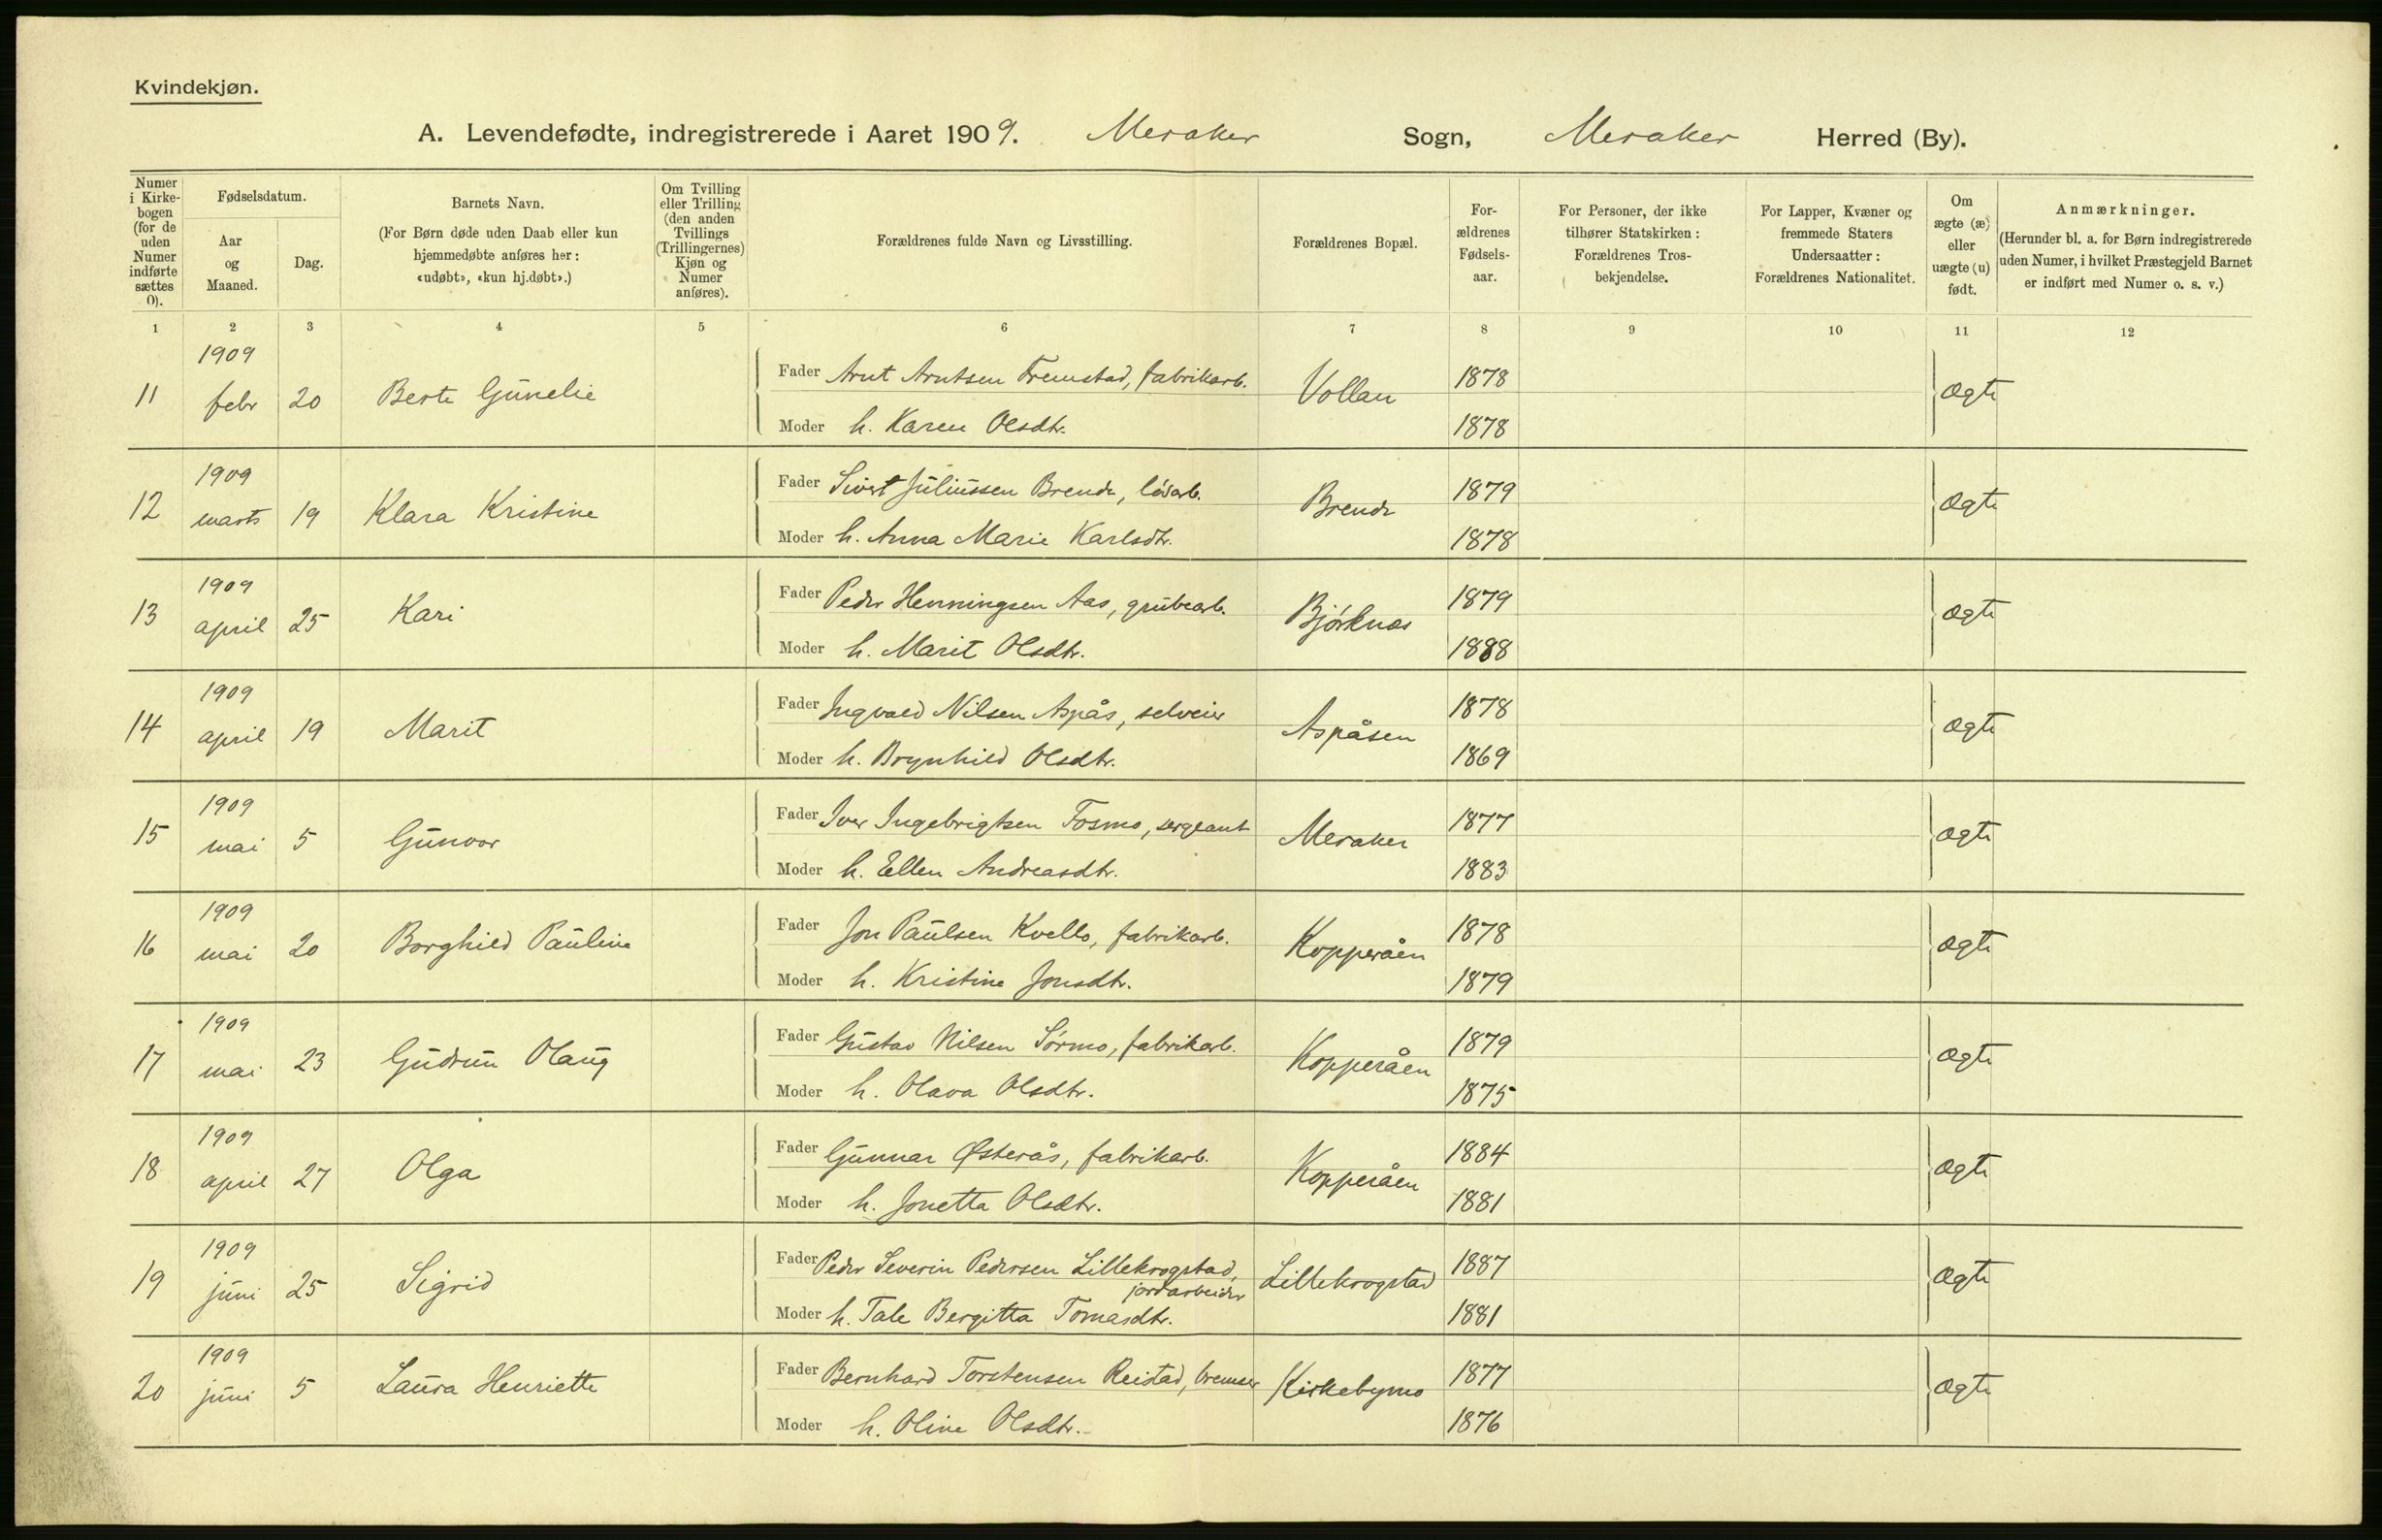 Kvindekjøn.
A. Levendefødte, indregistrerede i Aaret 1909. Meraker Sogn, Meraker Herred (By).
Numer i Kirkebogen (for de uden Numer indførte sættes 0).
Fødselsdatum.
Aar og Maaned.
Dag.
Barnets Navn.
(For Børn døde uden Daab eller kun
hjemmedøbte anføres her:
«udøbt», «kun hj.døbt».)
Om Tvilling eller Trilling (den anden Tvillings (Trillingernes) Kjøn og Numer anføres).
Forældrenes fulde Navn og Livsstilling.
Forældrenes Bopæl.
For-
ældrenes
Fødsels-
aar.
For Personer, der ikke
tilhører Statskirken:
Forældrenes Tros-
bekjendelse.
For Lapper, Kvæner og
fremmede Staters
Undersaatter:
Forældrenes Nationalitet.
Om
ægte (æ)
eller
uægte (u)
født.
Anmærkninger.
(Herunder bl. a. for Børn indregistrerede
uden Numer, i hvilket Præstegjeld Barnet
er indført med Numer o. s. v.)
1 2 3 4 5 6 7 8 9 10 11 12
1909
11 febr 20 Berte Gunelie Fader Arnt Arntsen Fremstad, fabrikarb. Vollan 1878 ægte
Moder h. Karen Olsdtr. 1878
1909
12 marts 19 Klara Kristine Fader Sivert Juliussen Brende, løsarb. Brende 1879 ægte
Moder h. Anna Marie Karlsdtr. 1878
1909
13 april 25 Kari Fader Peder Henningsen Aas, grubearb. Bjørknes 1879 ægte
Moder h. Marit Olsdtr. 1888
1909
14 april 19 Marit Fader Ingvald Nilsen Aspås, selveier Aspåsen 1878 ægte
Moder h. Brynhild Olsdtr. 1869
1909
15 mai 5 Gunvor Fader Iver Ingebrigtsen Fosmo, sergeant Meraker 1877 ægte
Moder h. Ellen Andreasdtr. 1883
1909
16 mai 20 Borghild Pauline Fader Jon Paulsen Kvello, fabrikarb. Kopperåen 1878 ægte
Moder h. Kristine Jonsdtr. 1879
1909
17 mai 23 Gudrun Olaug Fader Gustav Nilsen Sørmo, fabrikarb. Kopperåen 1879 ægte
Moder h. Olava Olsdtr. 1875
1909
18 april 27 Olga Fader Gunnar Østerås, fabrikarb. Kopperåen 1884 ægte
Moder h. Jonetta Olsdtr. 1881
1909
19 juni 25 Sigrid Fader Peder Severin Pedersen Lillekrogstad, Lillekrogstad 1887 ægte
jordarbeider
Moder h. Tale Bergitta Tomasdtr. 1881
1909
20 juni 5 Laura Henriette Fader Bernhard Torstensen Reistad, bremser Kirkebymo 1877 ægte
Moder h. Oline Olsdtr. 1876